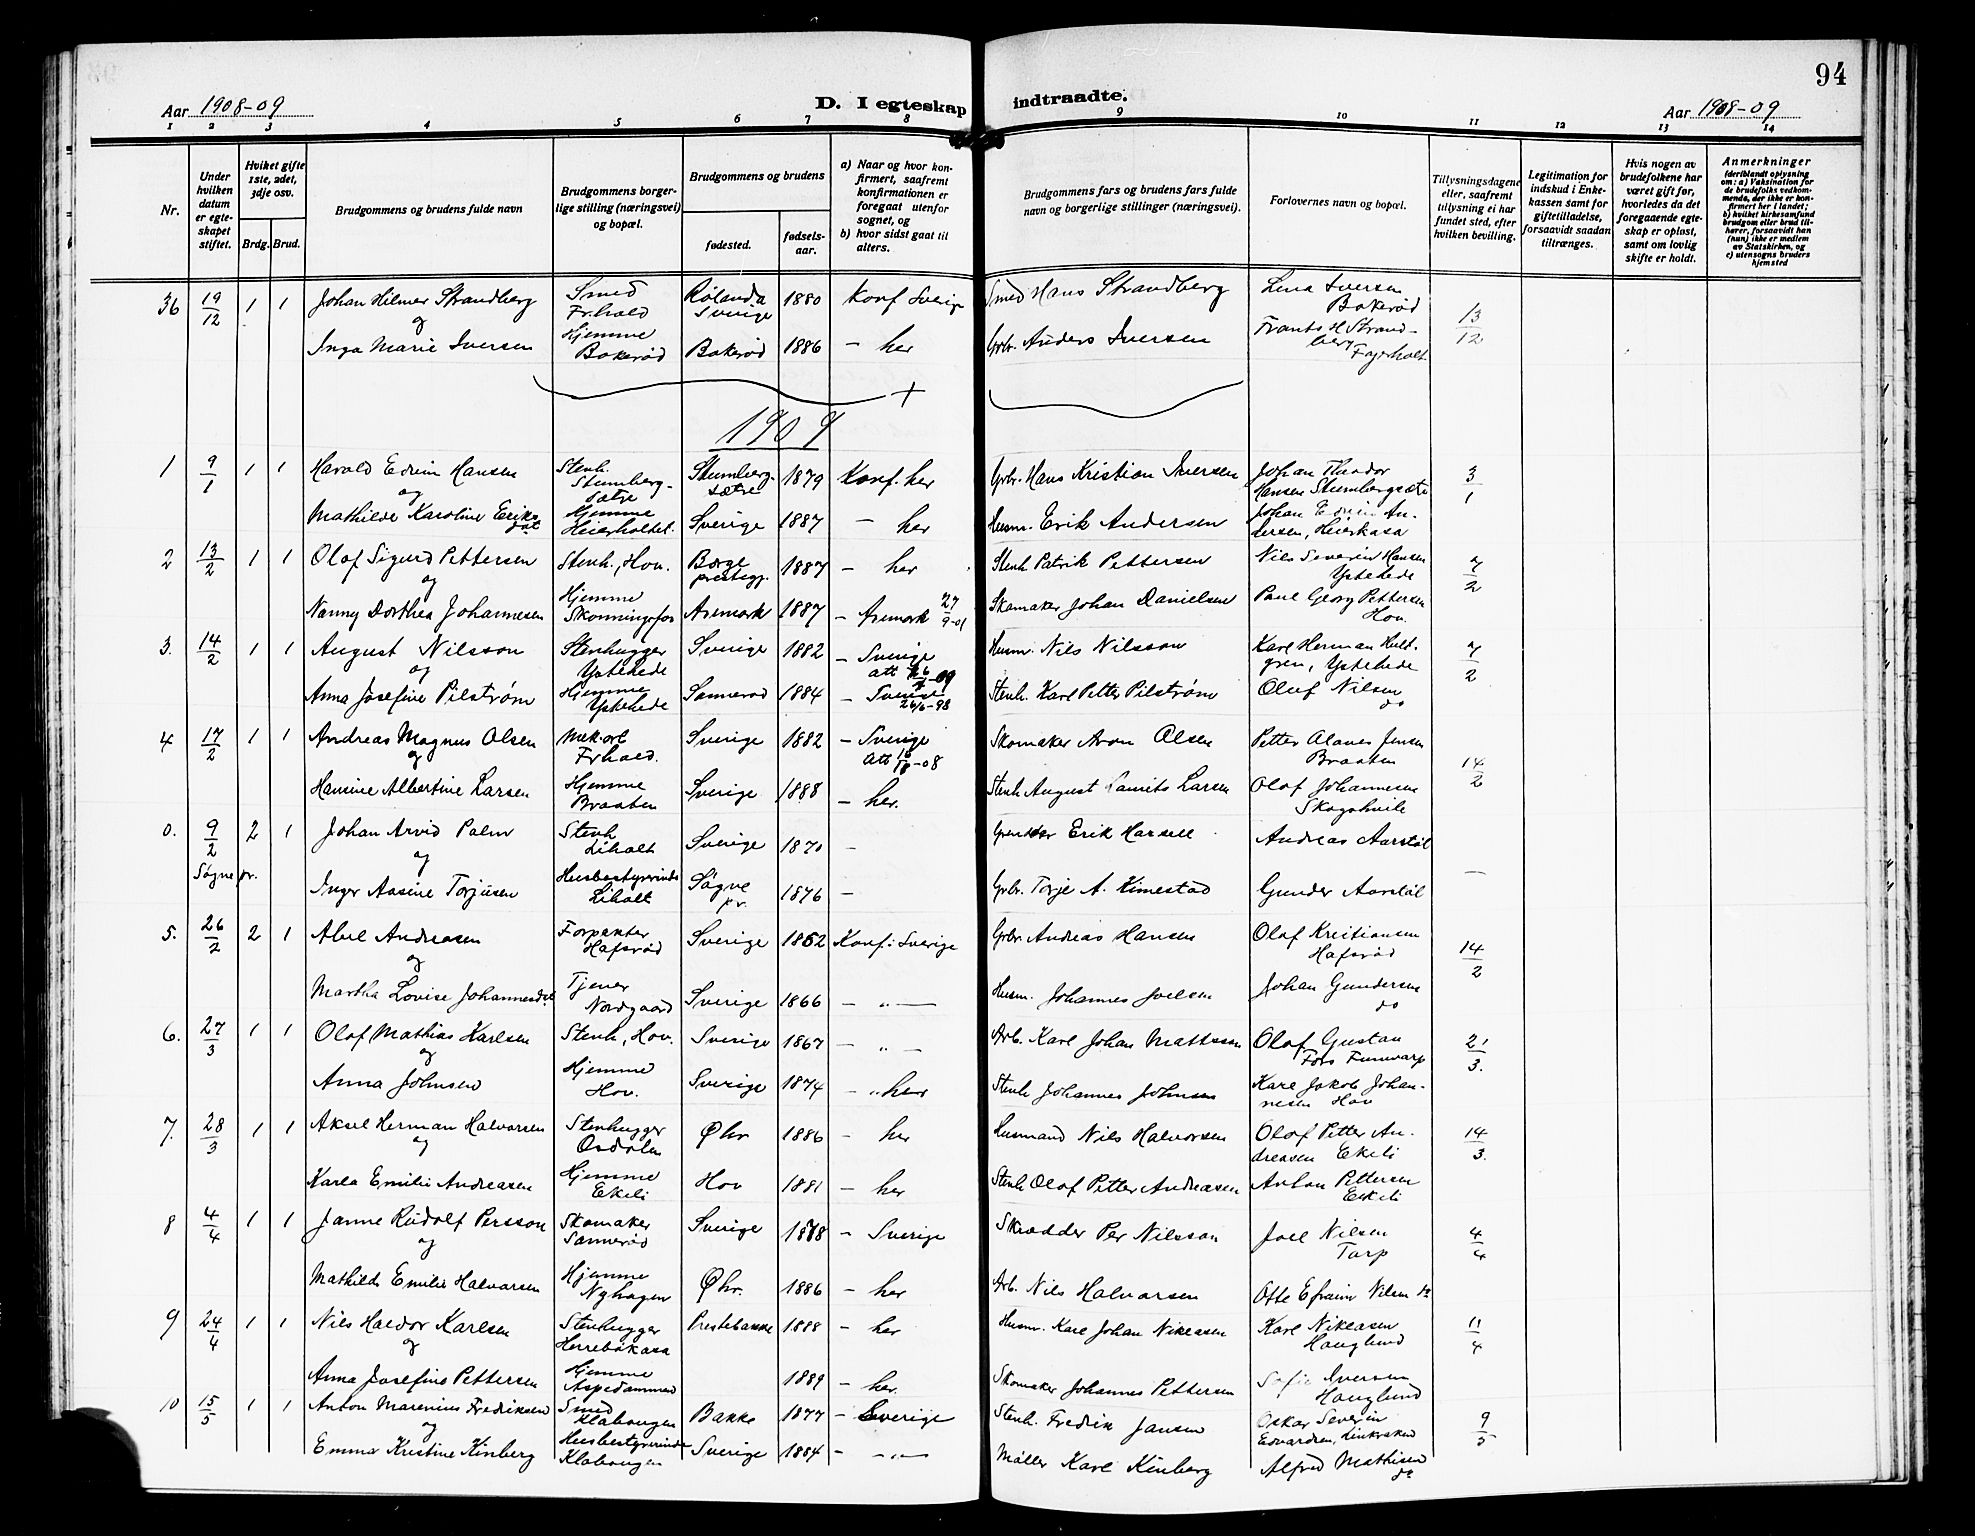 94
Aar 1908-09 D. I egteskap indtraadte. Aar 1908-09
1 2 3 4 5 6 7 8 9 10 11 12 13 14
Nr.
Under hvilken datum er egteskapet stiftet.
Hvilket gifte 1ste, 2det, 3dje osv.
Brdg. Brud.
Brudgommens og brudens fulde navn
Brudgommens borgerlige stilling (næringsvei) og bopæl.
Brudgommens og brudens
fødested. fødselsaar.
a) Naar og hvor konfirmert, saafremt konfirmationen er foregaat utenfor sognet, og
b) hvor sidst gaat til alters.
Brudgommens fars og brudens fars fulde navn og borgerlige stillinger (næringsvei).
Forlovernes navn og bopæl.
Tillysningsdagene eller, saafremt tillysning ei har fundet sted, efter hvilken bevilling.
Legitimation for indskud i Enkekassen samt for giftetilladelse, forsaavidt saadan tiltrænges.
Hvis nogen av brudefolkene har været gift før, hvorledes da det foregaaende egteskap er opløst, samt om lovlig skifte er holdt.
Anmerkninger (deriblandt oplysning om: a) Vaksination for de brudefolks vedkommende, der ikke er konfirmert her i landet; b) hvilket kirkesamfund brudgom eller brud tilhører, forsaavidt han (hun) ikke er medlem av Statskirken, og c) utensogns bruders hjemsted
36 19/12 1 1 Johan Hilmer Strandberg Smed Fr.hald Rølanda Sverige 1880 Konf. Sverige Smed Hans Strandberg Lina Iversen Bakerød 13/12
og
Inga Marie Iversen Hjemme Bakerød Bakerød 1886 — her Grbr. Anders Iversen Frants H Strandberg
1909
1 9/1 1 1 Harald Edvin Hansen Stenh. Stumbergsætre Stumbergsætre 1879 Konf. her Grbr. Hans Kristian Iversen Johan Theodor Hansen Stumbergsætre 3/1
og
Mathilde Karoline Eriksdat Hjemme Heierholtet Sverige 1887 — her Husm. Erik Andersen Johan Edvin Andersen, Heierkasa
2 13/2 1 1 Olaf Sigurd Pettersen Stenh., Hov. Borge prestegj. 1887 — her Stenh Patrik Pettersen Nils Severin Hansen Ystehede 7/2
og
Nanny Dorthea Johannesen Hjemme Skonningsfos Aremark 1887 — Aremark 27/9-01 Skomaker Johan Danielsen Paul Georg Pettersen Hov.
3. 14/2 1 1 August Nilsson Stenhugger Ystehede Sverige 1882 — Sverige att Husm. Nils Nilsson Karl Herman Hultgren, Ystehede 7/2
og
Anna Josefine Pilstrøm Hjemme Ystehede Sannerød 1884 — Sverige 26/6-98 Stenh. Karl Petter Pilstrøm Oluf Nilsen do
4 17/2 1 1 Andreas Magnus Olsen Mek arb Frhald. Sverige 1882 — Sverige Att Skomaker Aron Olsen Petter Olaves Jensen Braaten 14/2
og
Hansine Albertine Larsen Hjemme Braaten Sverige 1888 — her. Stenh August Laurits Larsen Olaf Johannesen Skogshvile
0. 9/2 2 1 Johan Arvid Palm Stenh Liholt Sverige 1870 — Erik Andreas Aarstøl
Søgne pr. og
Inger Aasine Torjusen Husbestyrerinde Liholt Søgne pr. 1876 — Grbr. Torje A. Kimestad Gunder Aarstøl —
5. 26/2 2 1 Abel Andreasen Forpakter Hafsrød Sverige 1862 Konf. i Sverige Grbr. Andreas Hansen Olaf Kristiansen Hafsrød 14/2
og
Martha Lovise Johannesdat Tjener Nordgaard Sverige 1866 — „ — Husm. Johannes Joelsen Johan Gundersen do
6. 27/3 1 1 Olaf Mathias Karlsen Stenh, Hov. Sverige 1867 — „ — Arb. Karl Johan Mattsson Olaf Gustav Fors 21/3.
og
Anna Johnsen Hjemme Hov. Sverige 1874 — „ her Stenh Johannes Johnsen Karl Jakob Johannesen Hov
7. 28/3 1 1 Aksel Herman Halvorsen Stenhugger Osdalen Øhr 1886 — her Husmand Nils Halvorsen Olaf Petter Andreasen Ekeli 14/3.
og
Karla Emilie Andreasen Hjemme Ekeli Hov 1881 — her Stenh Olaf Petter Andreasen Anton Pettersen Ekeli
8 4/4 1 1 Janne Rudolf Persson Skomaker Sannerød Sverige 1878 — Sverige Skrædder Per Nilsson Joel Nilsen Torp 4/4
og
Mathilde Emilie Halvorsen Hjemme Nyhagen Øhr. 1886 — her Arb. Nils Halvorsen Otto Efraim Nilsen do
9 24/4 1 1 Nils Haldor Karlsen Stenhugger Herrebøkasa Prestebakke 1888 — her Husm. Karl Johan Nikeasen Karl Nikeasen Hauglund 11/4
og
Anna Josefine Pettersen Hjemme Aspedammen 1889 — her. Skomaker Johannes Pettersen Sofie Iversen Hauglund
10 15/5 1 1 Anton Marenius Fredriksen Smed Klabøugen Bakke 1877 — Sverige Stenh. Fredrik Jansen Oskar Severin Edvardsen, 9/5
og
Emma Kristine Kinberg Husbestyrerinde Klabøugen Sverige 1884 — — „ — Møller Karl Kinberg Alfred Mathisen do